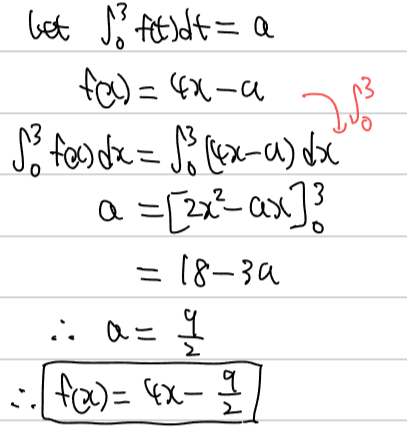 Let ∫₀³ f(t)dt = a
f(x) = 4x - a
∫₀³
∫₀³ f(x)dx = ∫₀³ (4x-a) dx
a = [2x²-ax]₀³
= 18-3a
∴ a = 9/2
∴ f(x) = 4x - 9/2